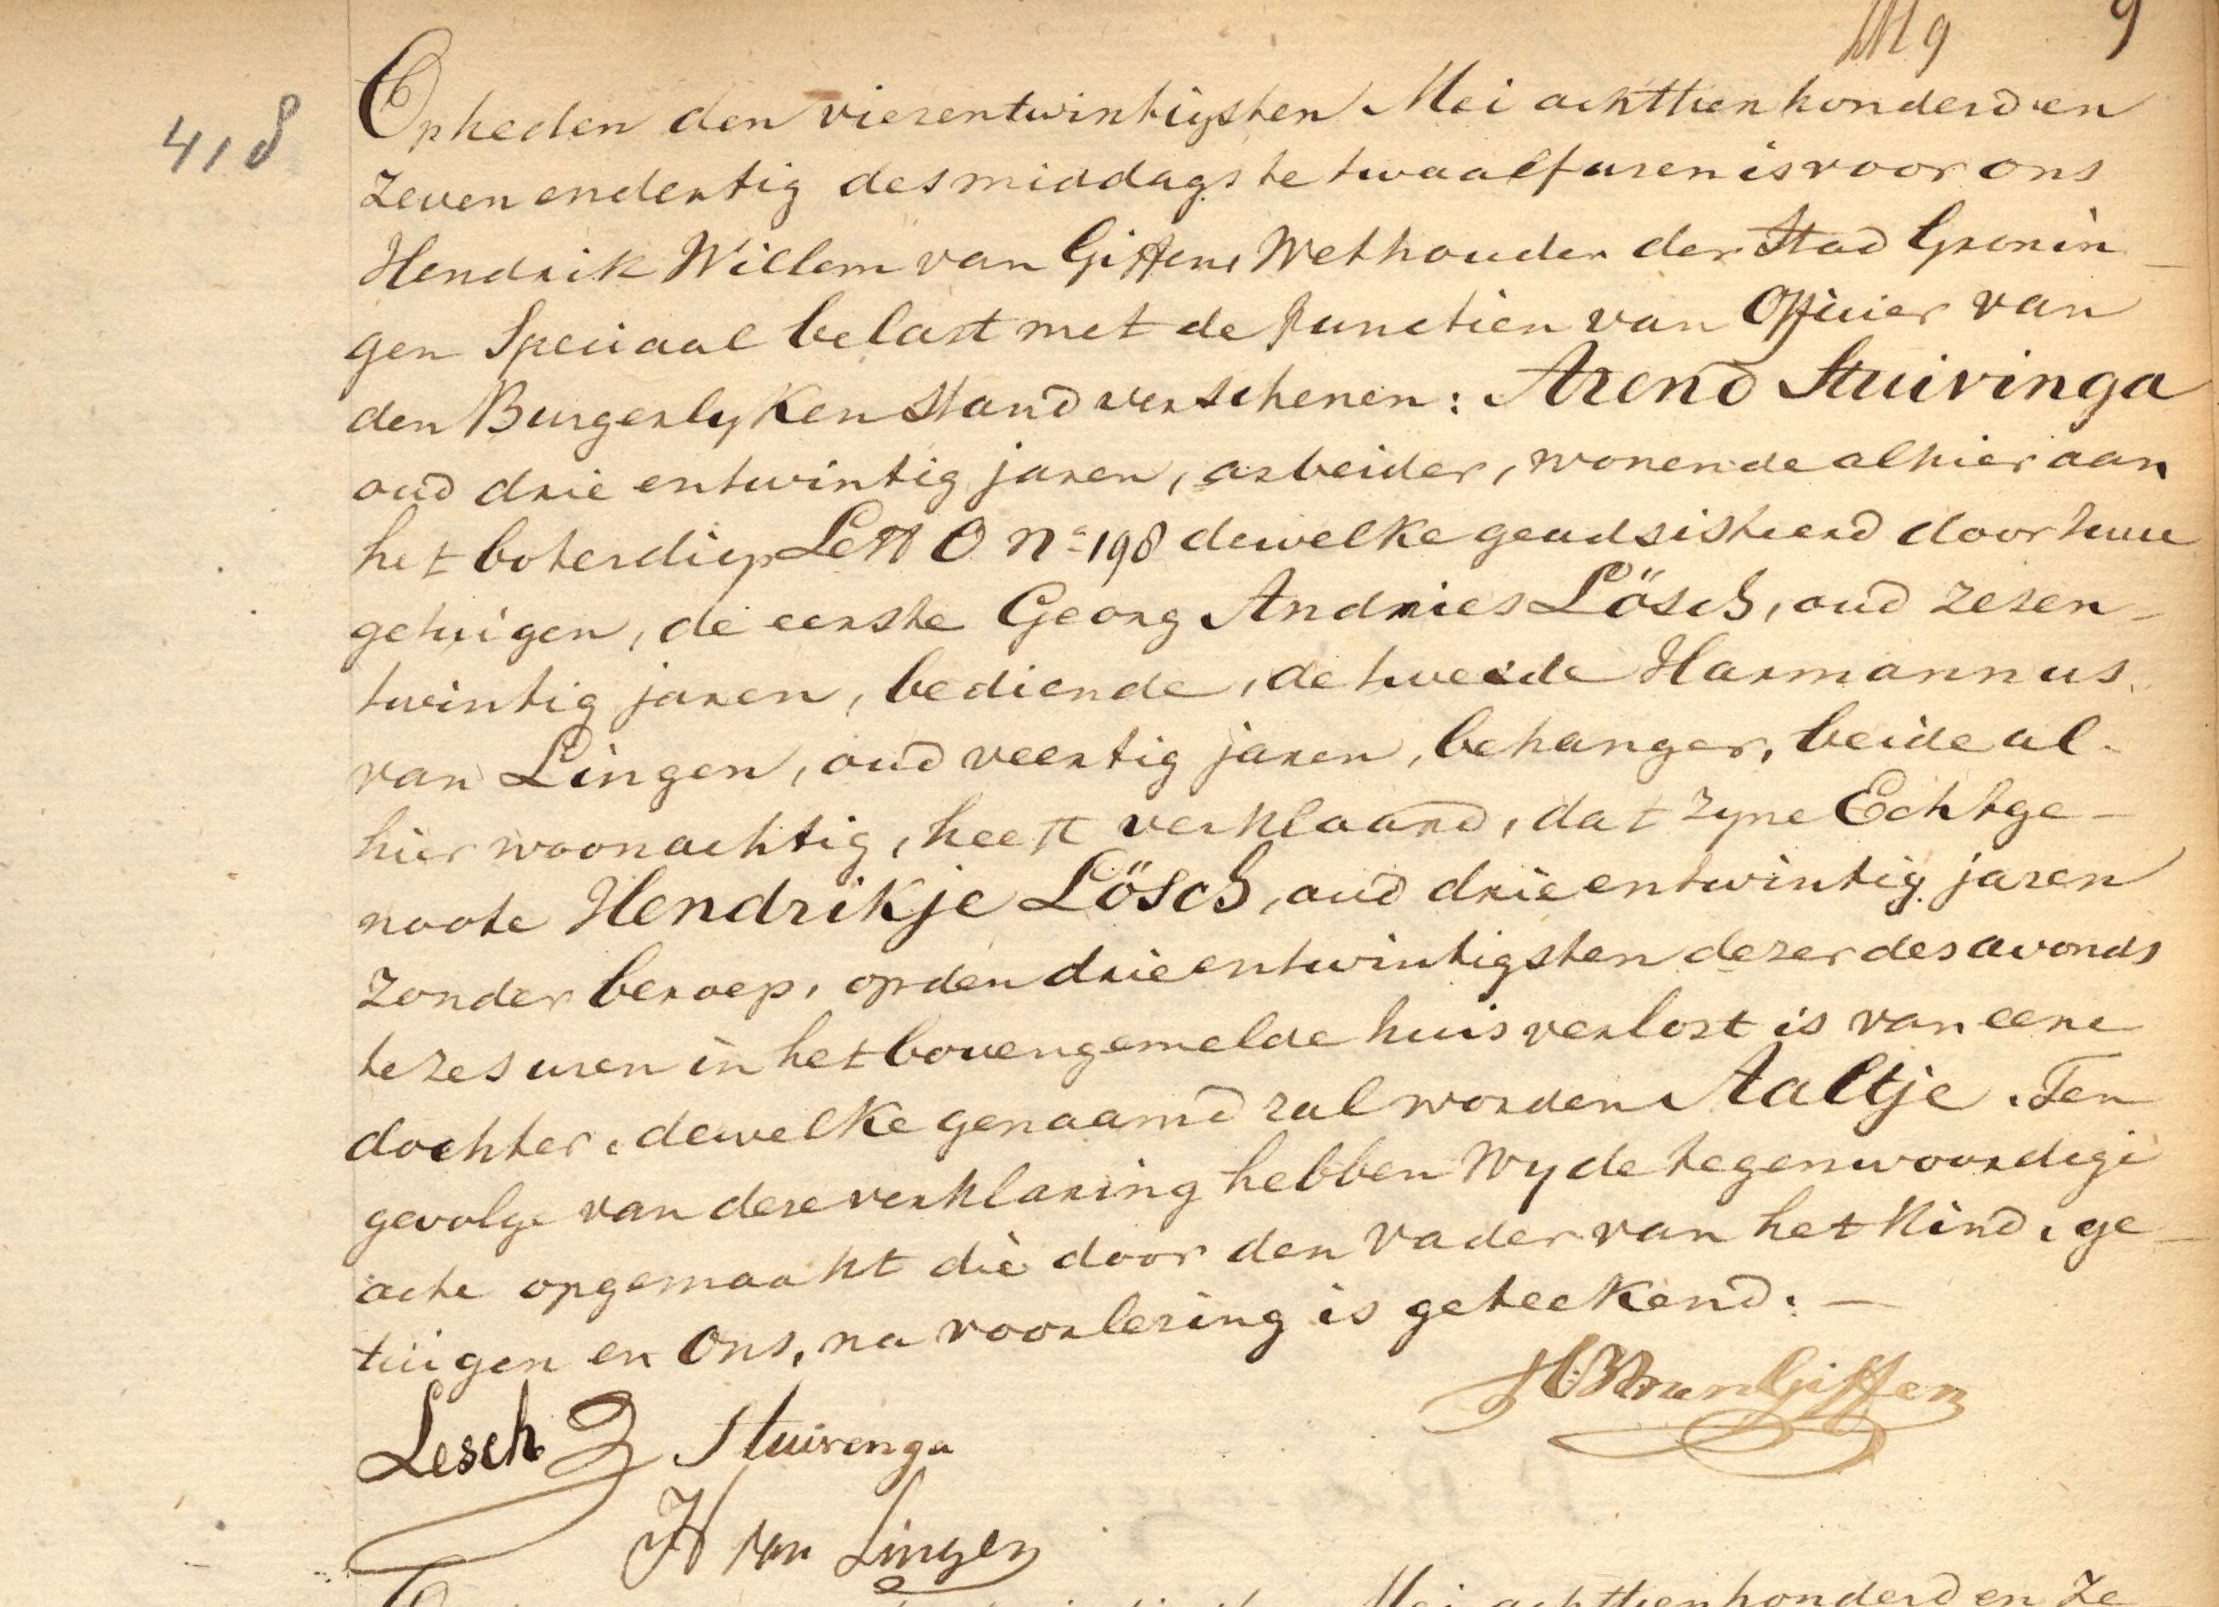 9
418
Opheden den vierentwintigsten Mei achttienhonderd en
zevenendertig des middags te twaalf uren is voor ons
Hendrik Willem van Giffen, Wethouder der Stad Gronin-
gen Speciaal belast met de functien van Officier van
den Burgerlyken Stand verschenen: Arend Stuivinga
oud drie entwintig jaren, arbeider, wonende alhier aan
het boterdiep Lett O No 198 dewelke geadsisteerd door twee
getuigen, de eerste Georg Andries Lösch, oud zesen-
twintig jaren, bediende, de tweede Harmannus
van Lingen, oud veertig jaren, behanger, beide al-
hier woonachtig, heeft verklaard, dat zyne Echtge-
noote Hendrikje Lösch, oud drieentwintig jaren
zonder beroep, op den drieentwintigsten dezer des avonds
te zes uren in het bovengemelde huis verlost is van eene
dochter, dewelke genaamd zal worden Aaltje. Ten
gevolge van deze verklaring hebben Wy de tegenwoordige
acte opgemaakt die door den vader van het kind, ge-
tuigen en Ons, na voorlezing is geteekend. —
HW van Giffen
Lesch Stuivenga
H van Lingen
Mei achttienhonderd en ze